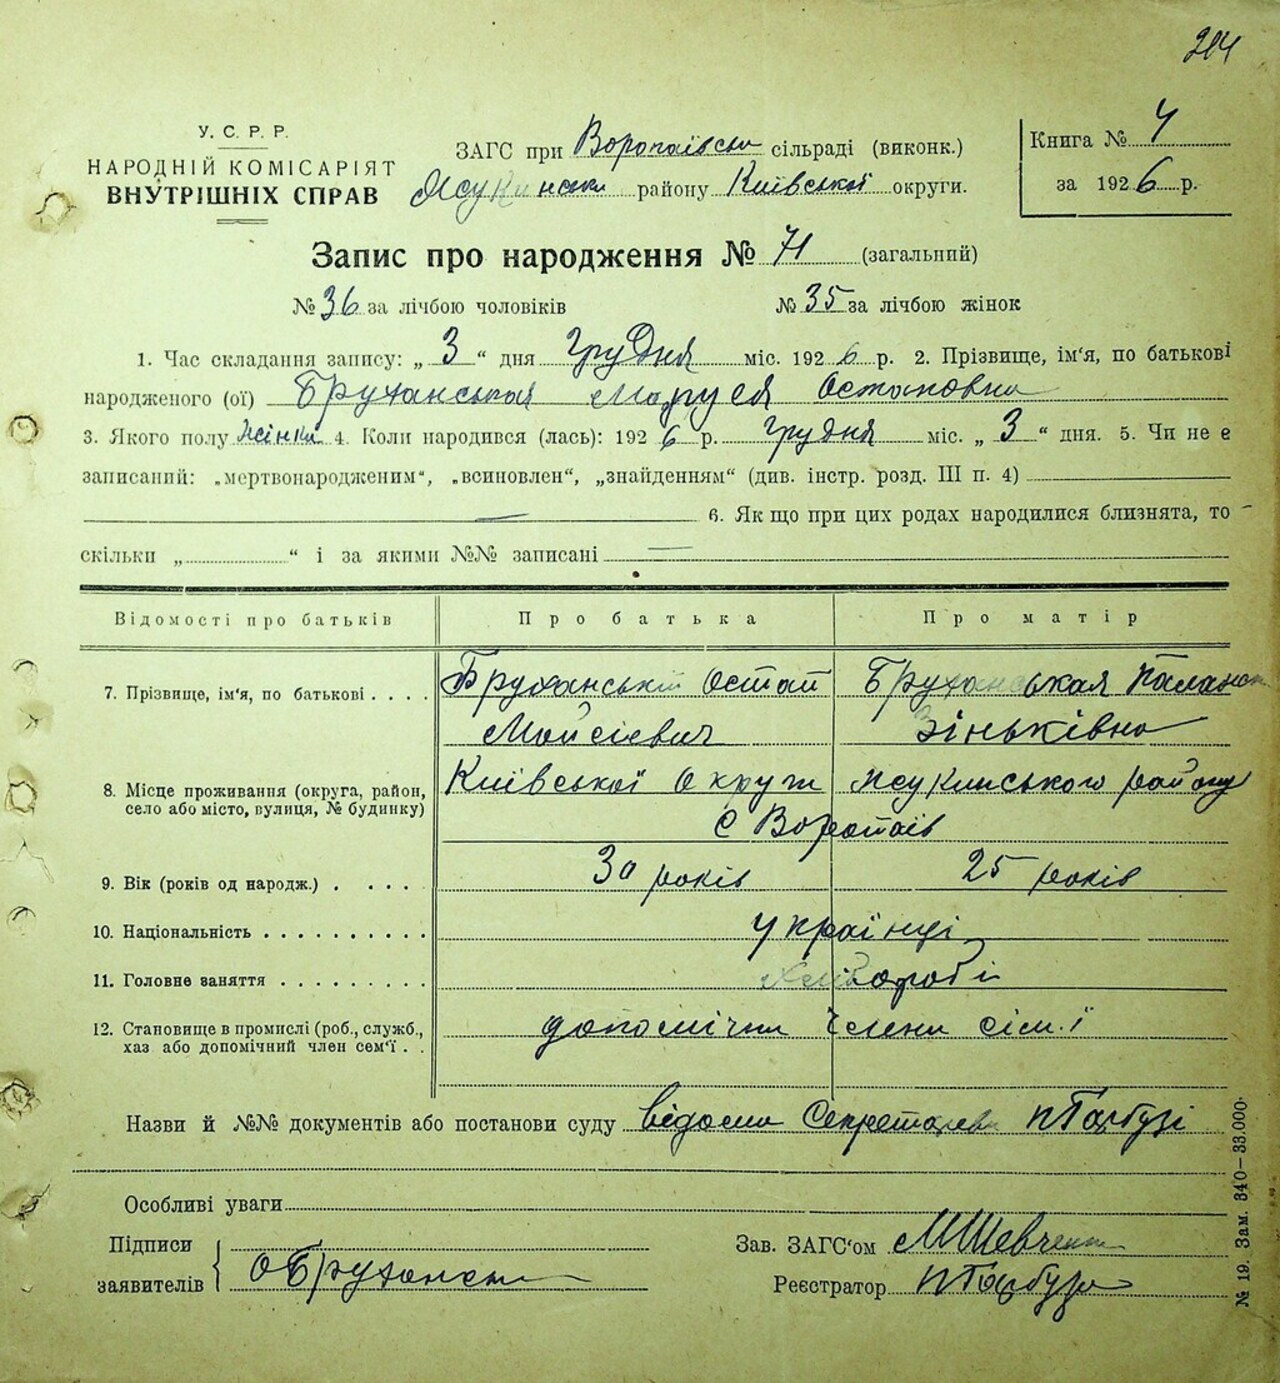 204
У. С. Р. Р.
НАРОДНІЙ КОМІСАРІЯТ
ВНУТРІШНІХ СПРАВ
ЗАГС при Воропаївськ сільраді (виконк.)
районy Київської округи.
Книга № 4
за 1926 р.
Запис про народження № 71 (загальний)
№ 36 за лічбою чоловіків № 35 за лічбою жінок
1. Час складання запису: „ 3 “ дня Грудня міс. 1926 р. 2. Прізвище, ім'я, по батькові
народженого (ої) Бруханськая Маруся Остаповна
3. Якого полу жінки 4. Коли народився (лась): 1926 р. Грудня міс. „ 3 “ дня. 5. Чи не є
записаний: „мертвонародженим“, „всиновлен“, „знайденням“ (див. інстр. розд. III п. 4)
6. Якщо при цих родах народилися близнята, то
скільки „ “ і за якими №№ записані
Відомості про батьків Про батька Про матір
7. Прізвище, ім'я, по батькові . . . . Бруханський Остап Бруханськая
Мойсієвич Зіньківна
8. Місце проживання (округа, район, Київської Округи Жукинського району
село або місто, вулиця, № будинку) С Воропаїв
9. Вік (років од народж.) . . . . 30 років 25 років
10. Національність . . . . . . . . . . українці
11. Головне заняття . . . . . . . . . Хлібороби
12. Становище в промислі (роб., служб., допомічни члени сім.ї
хаз або допомічний член сем'ї . .
Назви й №№ документів або постанови суду відоми Секретареви П Гарбузі
Особливі уваги
Підписи
заявителів О Бруханск
Зав. ЗАГС'ом М Шевченк
Реєстратор П Гарбуз
№ 19. Зам. 340—33.000.